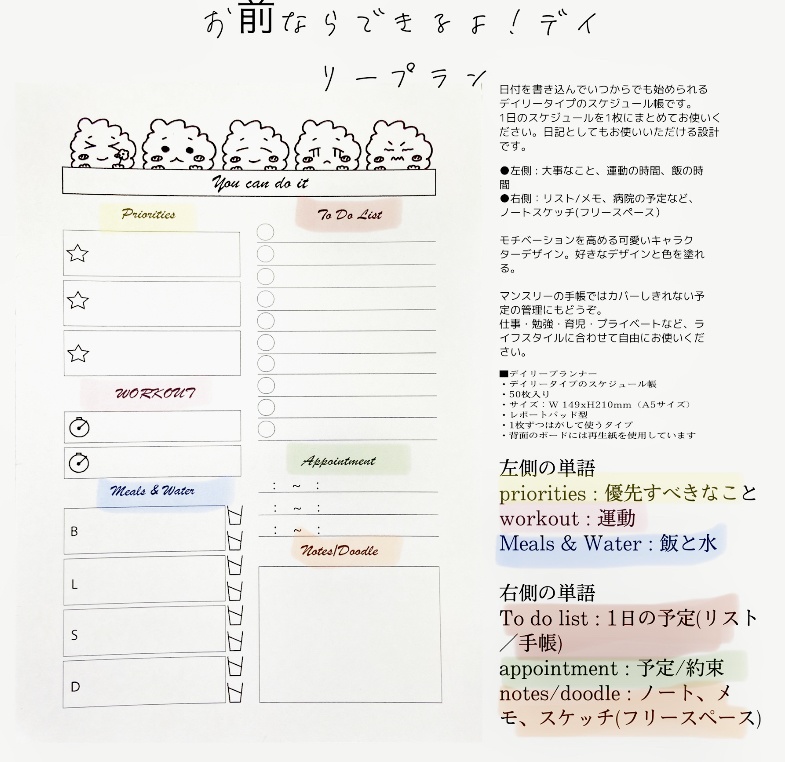 お前ならできるよ！デイ
リープラン
You can do it
Priorities
WORKOUT
Meals & Water
B
L
S
D
To Do List
Appointment
: ~ :
: ~ :
: ~ :
Notes/Doodle
日付を書き込んでいつからでも始められる
デイリータイプのスケジュール帳です。
1日のスケジュールを1枚にまとめてお使いく
ださい。日記としてもお使いいただける設計
です。
●左側：大事なこと、運動の時間、飯の時
間
●右側：リスト/メモ、病院の予定など、
ノートスケッチ(フリースペース)
モチベーションを高める可愛いキャラク
ターデザイン。好きなデザインと色を塗れ
る。
マンスリーの手帳ではカバーしきれない予
定の管理にもどうぞ。
仕事・勉強・育児・プライベートなど、ラ
イフスタイルに合わせて自由にお使いくだ
さい。
■デイリープランナー
・デイリータイプのスケジュール帳
・50枚入り
・サイズ：W 149xH210mm（A5サイズ）
・レポートパッド型
・1枚ずつはがして使うタイプ
・背面のボードには再生紙を使用しています
左側の単語
priorities : 優先すべきなこと
workout : 運動
Meals & Water : 飯と水
右側の単語
To do list : 1日の予定(リスト
／手帳)
appointment : 予定/約束
notes/doodle : ノート、メ
モ、スケッチ(フリースペース)